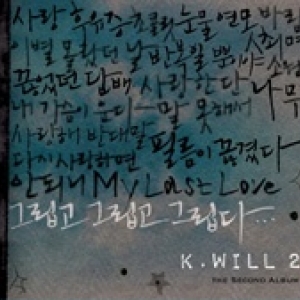 사랑 후유증 초콜릿 눈물 연모 바람
이별 몰랐던 날 반복일 뿐야 소원
끊었던 담배 사랑한다 나무
내 가슴이 운다 말 못해서
사랑해 반대말 필름이 끊겼다
다시 사랑하면
안되니 My Last Love
그립고 그립고 그립다...
K.WILL 2
THE SECOND ALBUM